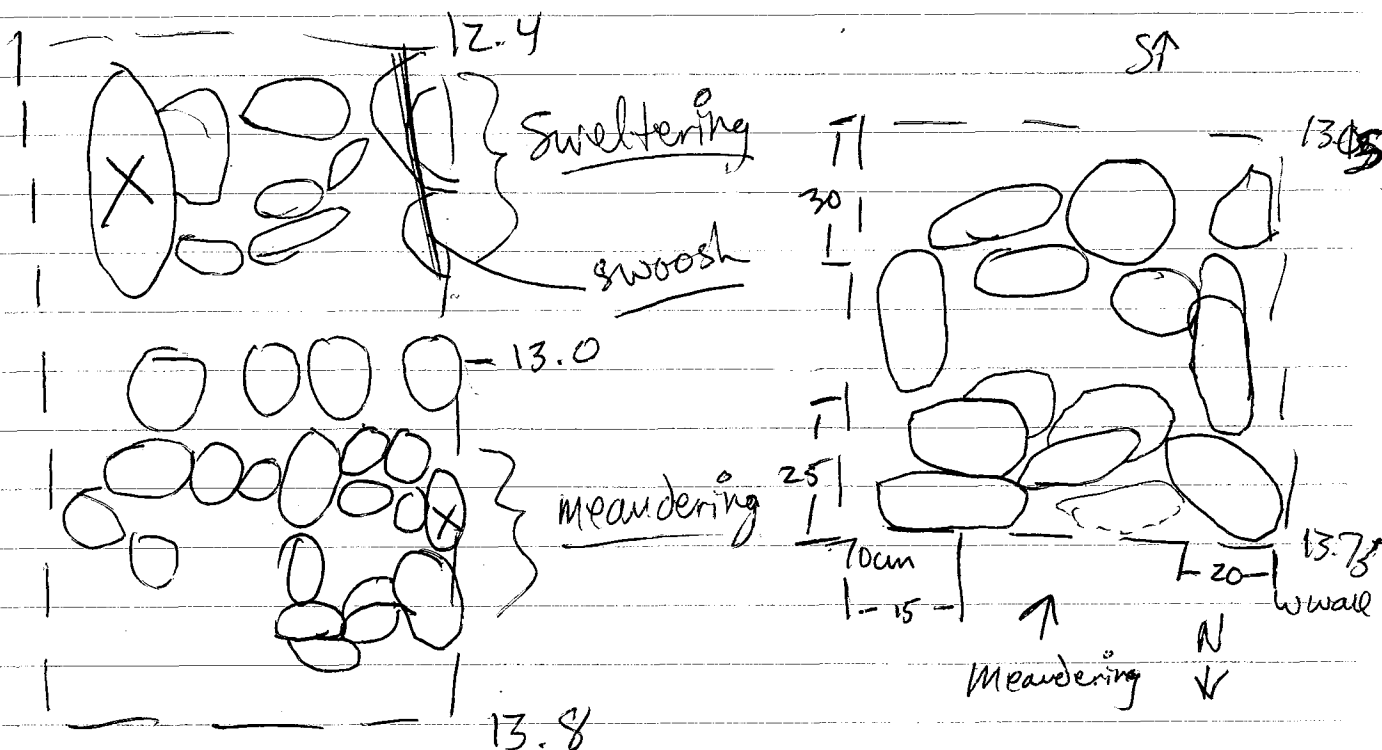 12.4
Sweltering
swoosh
13.0
meandering
13.8
S↑
30
25
70cm
15
20
W wall
Meandering
N
↓